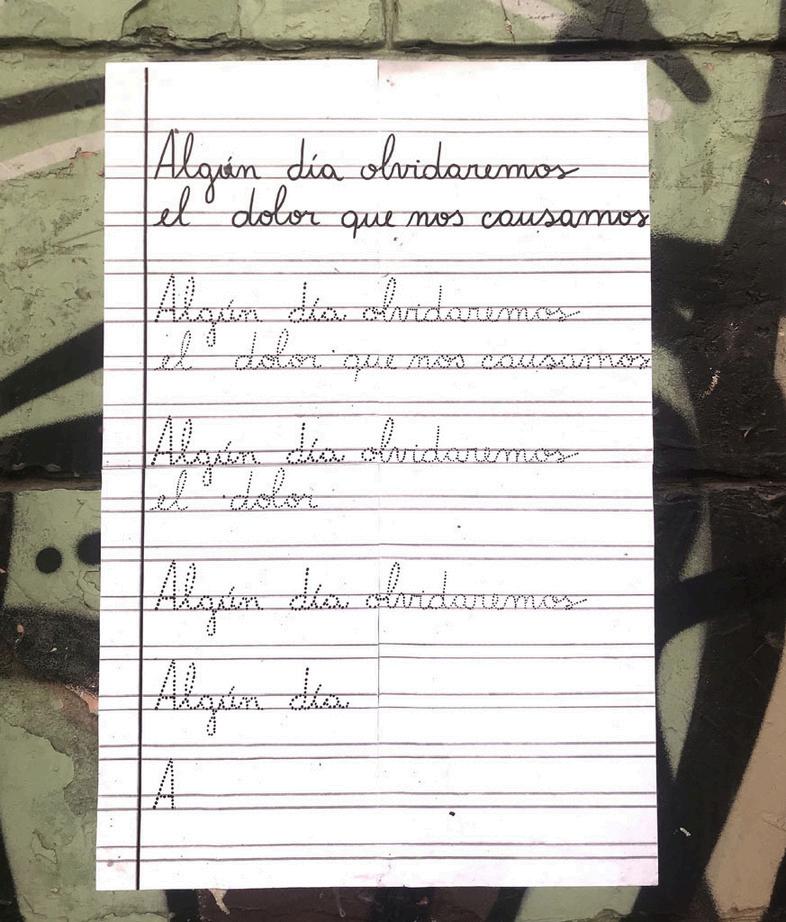 Algún día olvidaremos
el dolor que nos causamos
Algún día olvidaremos
el dolor que nos causamos
Algún día olvidaremos
el dolor
Algún día olvidaremos
Algún día
A